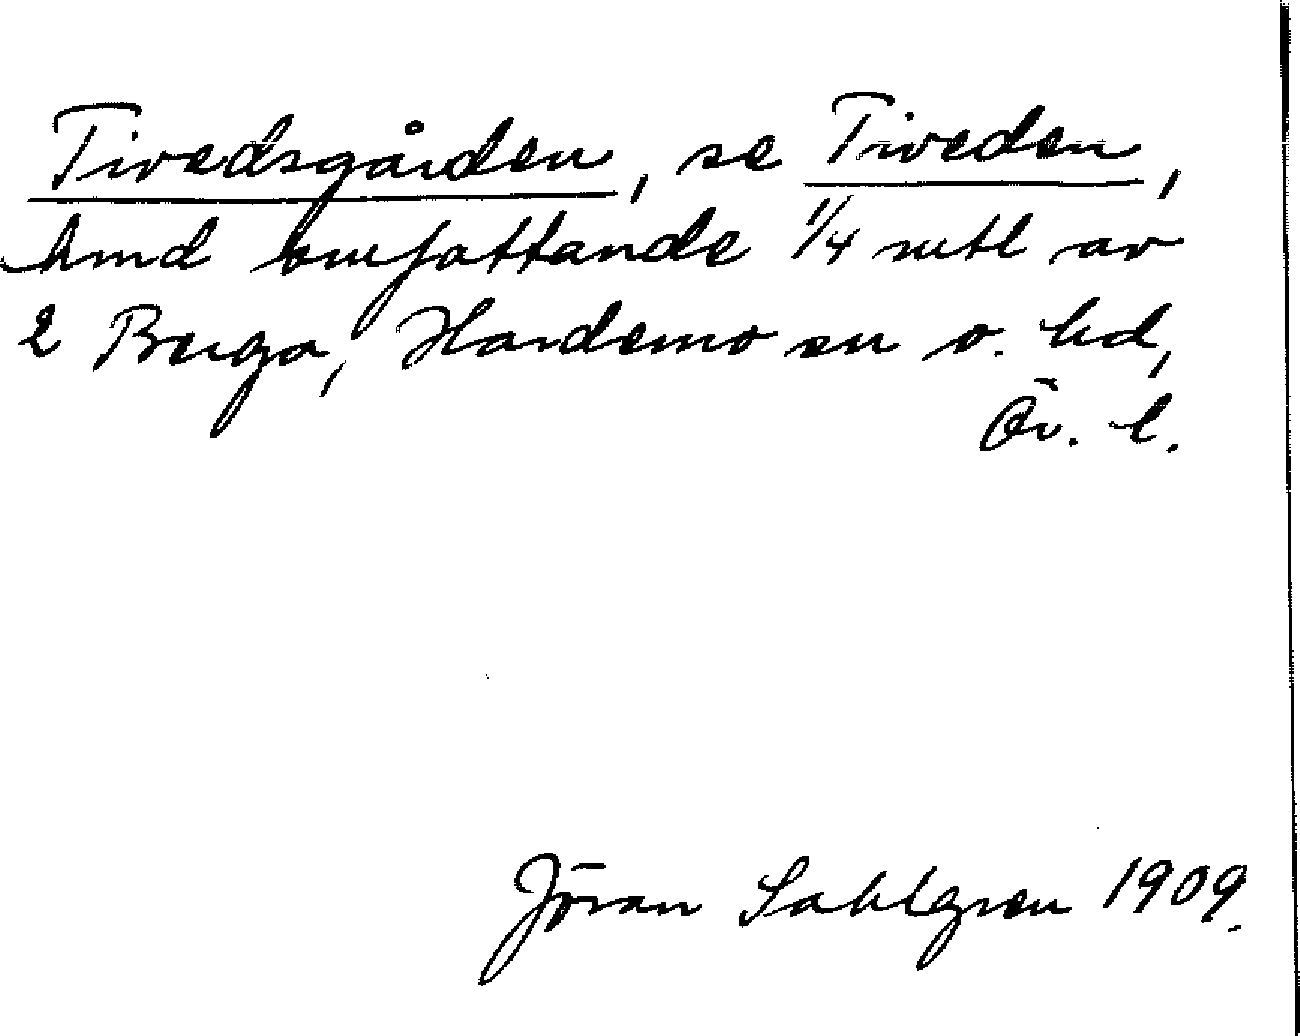 Tivedsgården, se Tiveden,
hmd omfattande 1/4 mtl av
2 Berga, Hardemo sn o. hd,
Ör. l.
Jöran Sahlgren 1909.